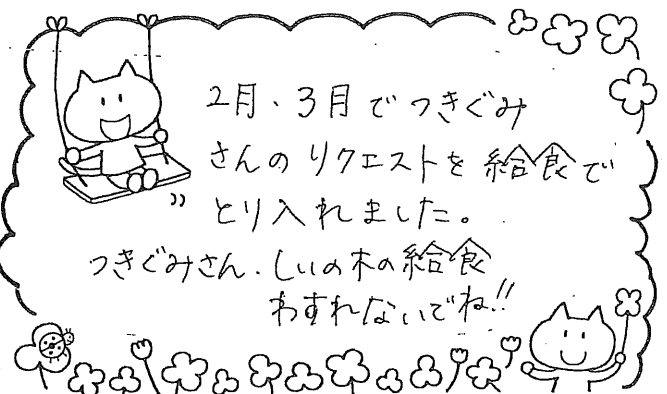 2月、3月でつきぐみ
さんのリクエストを給食で
とり入れました。
つきぐみさん、しいの木の給食
わすれないでね!!